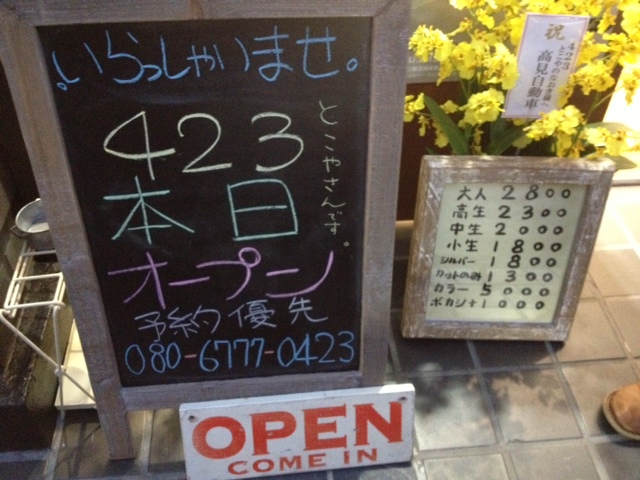 いらっしゃいませ。
423
とこやさんです。
本日
オープン
予約優先
080-6777-0423
OPEN
COME IN
祝
423
とこやのなお巻様へ
高見自動車
大人 2800
高生 2300
中生 2000
小生 1800
シルバー 1800
カットのみ 1300
カラー 5000
ボカシ+1000